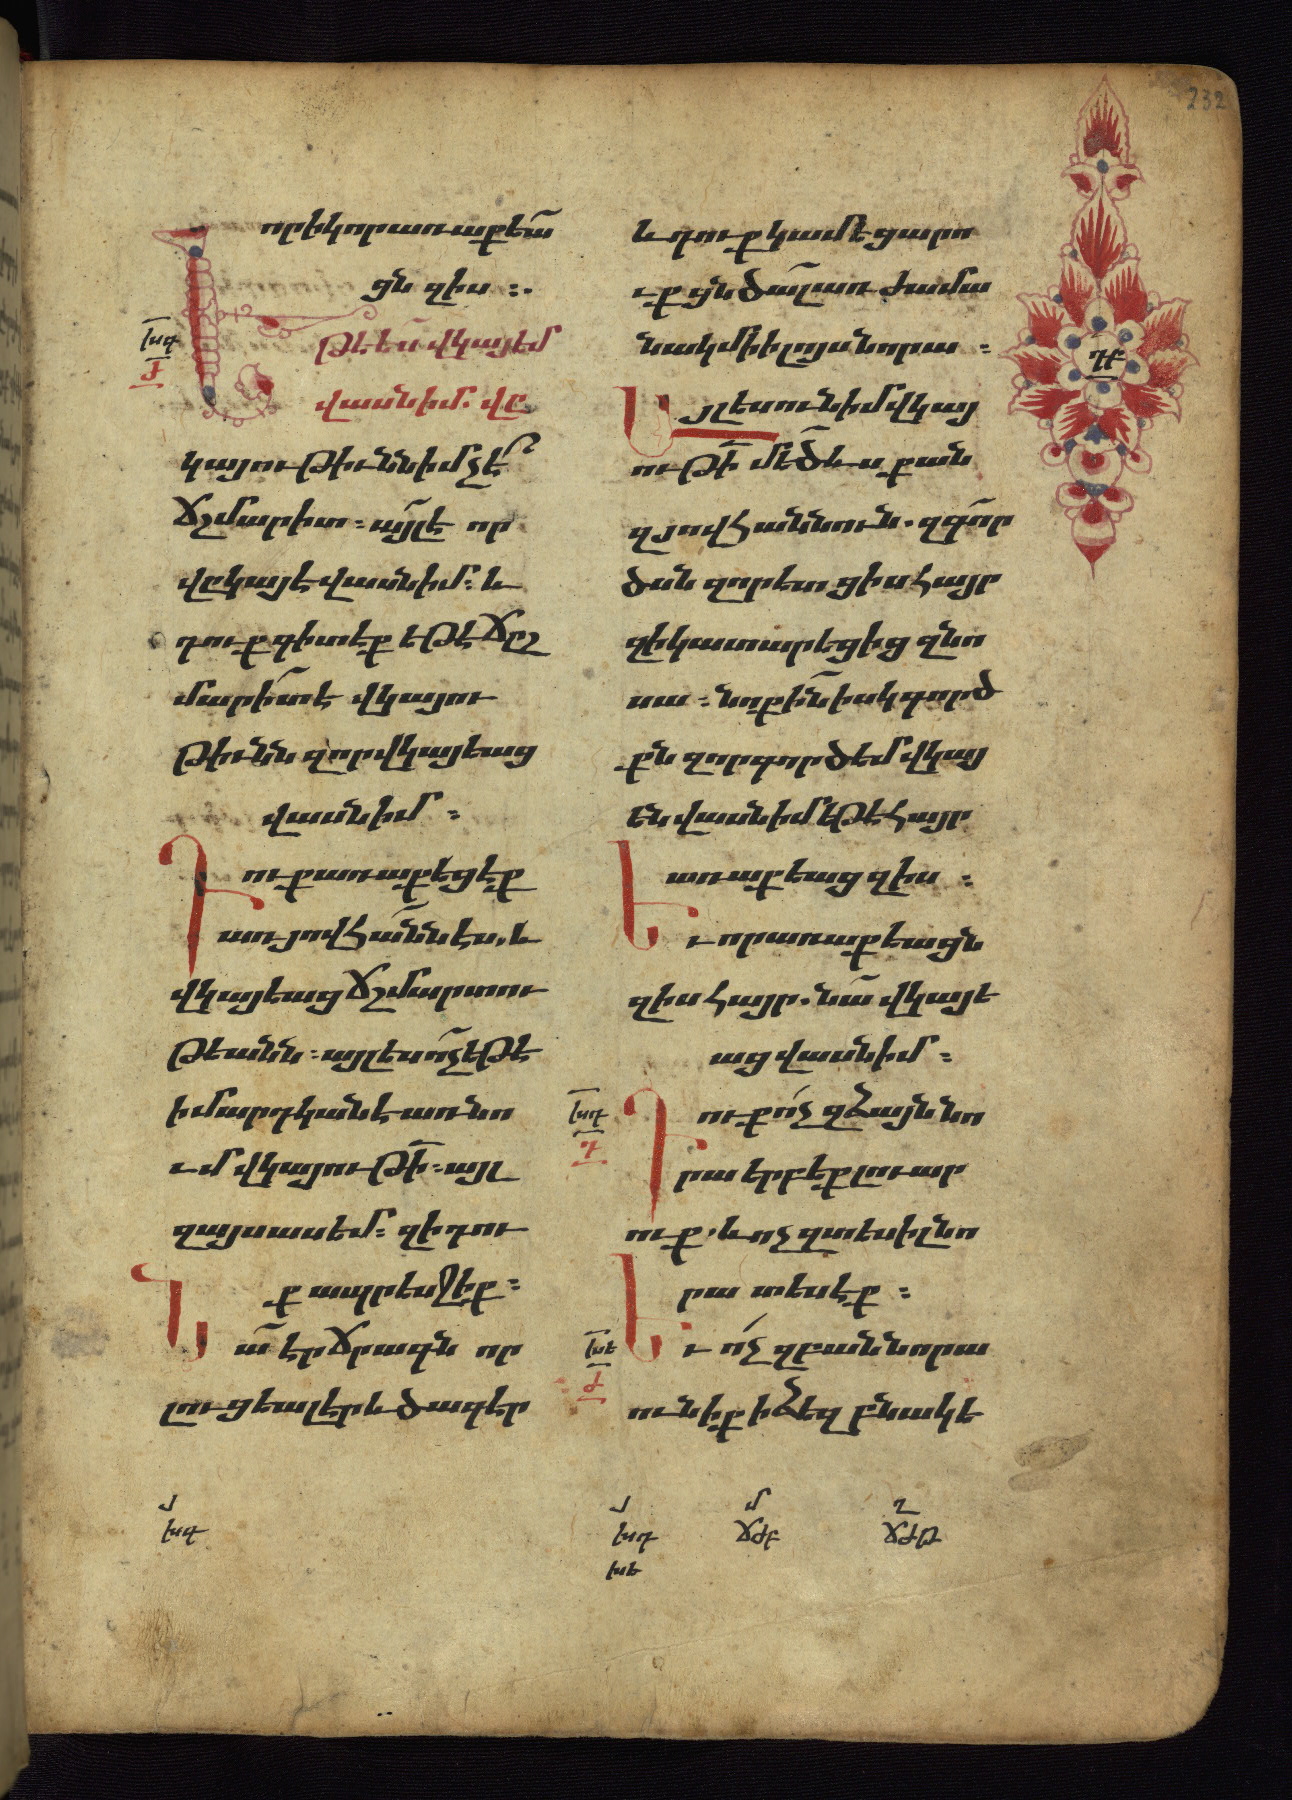 232
որ իկոր առաքեա̄
ցն զիս ։.
խգ
Ժ
Եթէ ես վկայեմ
վասն իմ. վը
կայութիւնն իմ չէ՞
ճշմարիտ ։ այլ է որ
վըկայէ վասն իմ ։ և
դուք գիտէք եթէ ճըշ
մարիտ է վկայու
թիւնն զոր վկայեաց
վասն իմ ։
Դուք առաքեցէք
առ յովհաննէս, և
վկայեաց ճշմարտու
թեանն ։ այլ ես ո՛չ եթէ
ի մարդկանէ առնո
ւմ վկայութի̄ ։ այլ
զայս ասեմ ։ զի դու
ք ապրեսջիք ։
Նա էր ճրագն որ
լուցեալ էր և ծագէր
և դուք կամեցարո
ւք ցնծալ առ ժամա
նակ մի ի լոյս նորա ։
Այլ ես ունիմ վկայ
ութի̄ մեծ ևս քան
զյովհաննուն. զգոր
ծսն զոր ետ ցիս հայր
զի կատարեցից զնո
սա ։ նոքին իսկ գործ
քն զոր գործեմ վկայ
են վասն իմ եթէ հայր
առաքեաց զիս ։
Եւ որ առաքեացն
զիս հայր. նա վկայե
աց վասն իմ ։
խդ
Դ
Դուք ո՛չ զձայն նո
րա երբէք լուար
ուք. և ոչ զտեսիլ նո
րա տեսէք ։
խե
Ժ
Եւ ո՛չ զբան նորա
ունիք ի ձեզ բնակե
դբ
Յ
խգ
Յ Մ Ղ
խդ ճժբ ճժթ
խե